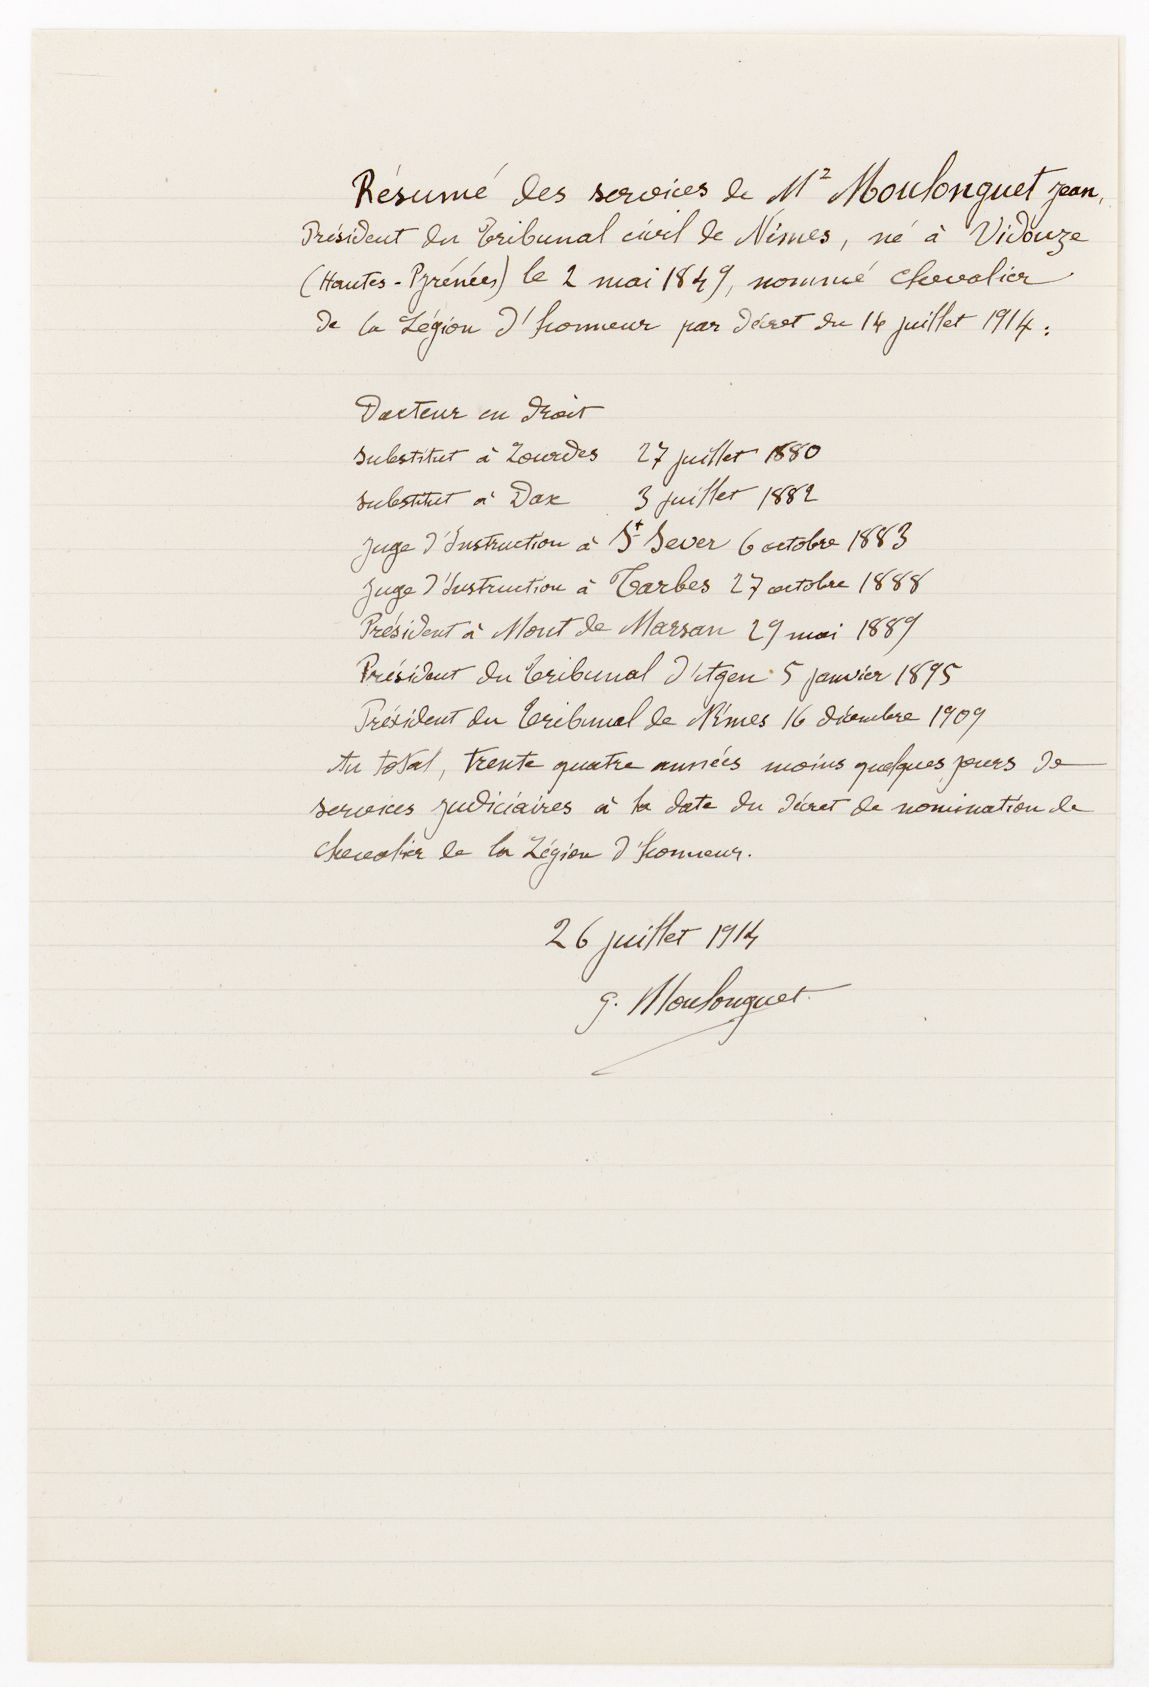 Résumé des services de Mr Moulonguet Jean,
Président du Tribunal civil de Nîmes, né à Vidouze
(Hautes-Pyrénées) le 2 mai 1849, nommé chevalier
de la Légion d'honneur par décret du 14 juillet 1914 :
Docteur en droit
Substitut à Lourdes 27 juillet 1880
Substitut à Dax 3 juillet 1882
Juge d'Instruction à St Sever 6 octobre 1883
Juge d'Instruction à Tarbes 27 octobre 1888
Président à Mont de Marsan 29 mai 1889
Président du Tribunal d'Agen 5 janvier 1895
Président du Tribunal de Nîmes 16 décembre 1909
Au total, trente quatre années moins quelques jours de
services judiciaires à la date du décret de nomination de
chevalier de la Légion d'honneur.
26 juillet 1914
J. Moulonguet